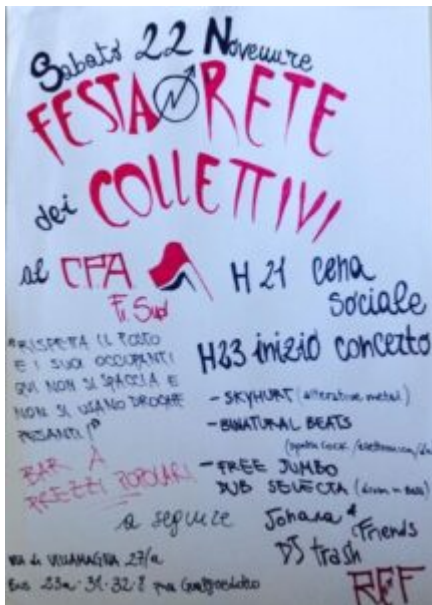 Sabato 22 Novembre
FESTA RETE
dei COLLETTIVI
al CPA
Fi Sud
H 21 cena
sociale
H23 inizio concerto
"RISPETTA IL POSTO
E I SUOI OCCUPANTI
QUI NON SI SPACCIA E
NON SI USANO DROGHE
PESANTI!"
BAR A
PREZZI POPOLARI
- SKYHURT (alterative metal)
- BINATURAL BEATS
- FREE JUMBO
DUB SELECTA (drum n bass)
a seguire Johana & Friends
DJ trash
via di VILLAMAGNA 27/a
Bus 23a-31-32
REF